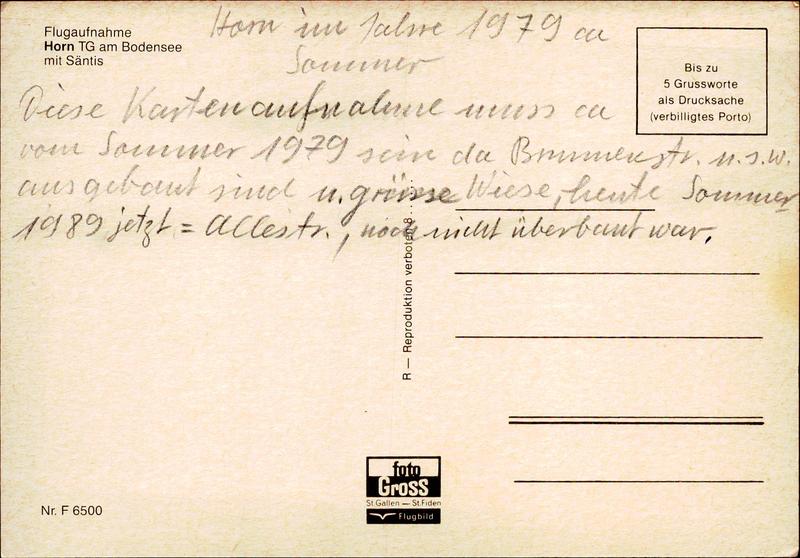 Flugaufnahme
Horn TG am Bodensee
mit Säntis
Horn im Jahre 1979 ca
Sommer
Bis zu
5 Grussworte
als Drucksache
(verbilligtes Porto)
Diese Kartenaufnahme muss ca
vom Sommer 1979 sein da Brunnenstr. u.s.w.
ausgebaut sind u. grösse Wiese, heute Sommer
1989 jetzt = Allestr., noch nicht überbaut war.
R — Reproduktion verboten
foto
Gross
St.Gallen — St.Fiden
Flugbild
Nr. F 6500